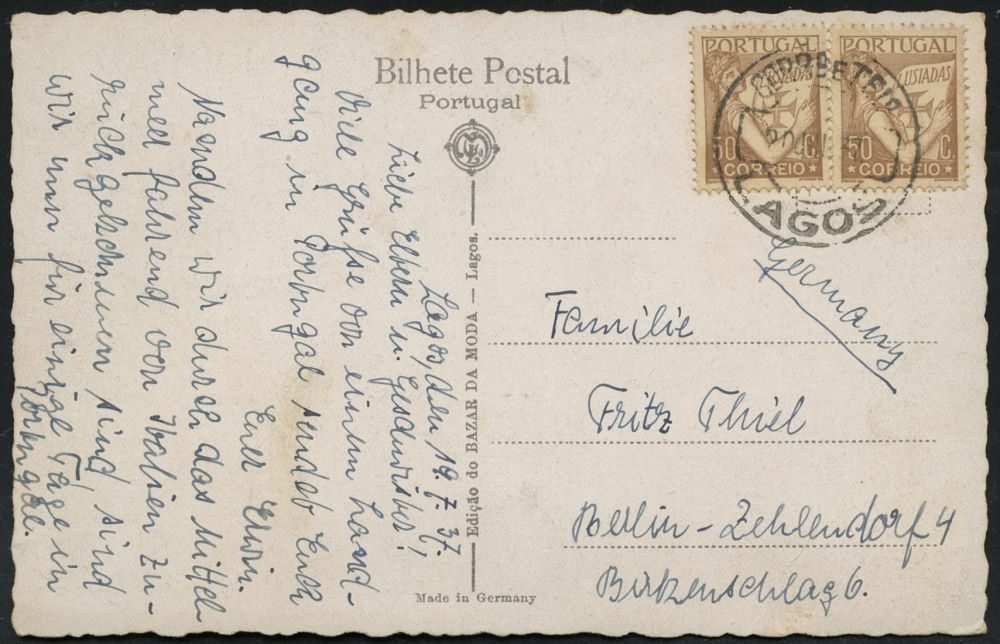 Bilhete Postal
Portugal
Lagos, den 19.7.37.
Liebe Eltern u. Geschwister!
Viele Grüsse von einem Land-
gang in Portugal sendet Euch
Euer Erwin.
Nachdem wir durch das Mittel
meer fahrend von Italien zu-
rückgekehrt sind sind
wir nun für einige Tage in
Portugal.
Edição do BAZAR DA MODA — Lagos.
Made in Germany
PORTUGAL
LUSIADAS
50 C.
CORREIO
PORTUGAL
LUSIADAS
50 C.
CORREIO
LAGOS
Germany
Familie
Fritz Thiel
Berlin-Zehlendorf 4
Birkenschlag 6.